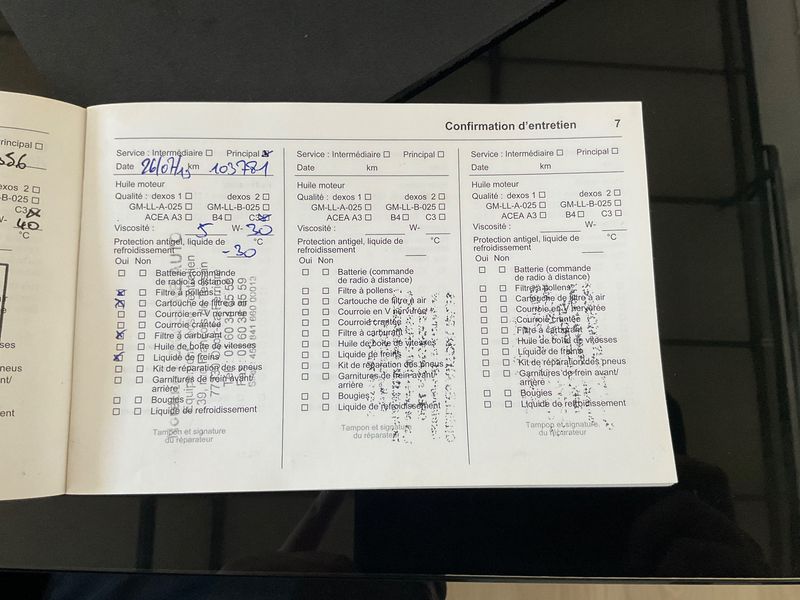 Confirmation d'entretien 7
rincipal ☐
exos 2 ☐
-B-025 ☐
C3☒
W- 40
°C
ses
neus
ant/
ent
Service : Intermédiaire ☐ Principal ☒
Date 26/07/13 km 103781
Huile moteur
Qualité : dexos 1 ☐ dexos 2 ☐
GM-LL-A-025 ☐ GM-LL-B-025 ☐
ACEA A3 ☐ B4 ☐ C3 ☒
Viscosité : 5 W- 30
Protection antigel, liquide de
refroidissement -30 °C
Oui Non
☐ ☐ Batterie (commande
de radio à distance)
☒ ☐ Filtre à pollens
☒ ☐ Cartouche de filtre à air
☐ ☐ Courroie en V nervurée
☐ ☐ Courroie crantée
☒ ☐ Filtre à carburant
☐ ☐ Huile de boîte de vitesses
☒ ☐ Liquide de freins
☐ ☐ Kit de réparation des pneus
☐ ☐ Garnitures de frein avant/
arrière
☐ ☐ Bougies
☐ ☐ Liquide de refroidissement
Tampon et signature
du réparateur
Service : Intermédiaire ☐ Principal ☐
Date km
Huile moteur
Qualité : dexos 1 ☐ dexos 2 ☐
GM-LL-A-025 ☐ GM-LL-B-025 ☐
ACEA A3 ☐ B4 ☐ C3 ☐
Viscosité : W-
Protection antigel, liquide de
refroidissement °C
Oui Non
☐ ☐ Batterie (commande
de radio à distance)
☐ ☐ Filtre à pollens
☐ ☐ Cartouche de filtre à air
☐ ☐ Courroie en V nervurée
☐ ☐ Courroie crantée
☐ ☐ Filtre à carburant
☐ ☐ Huile de boîte de vitesses
☐ ☐ Liquide de freins
☐ ☐ Kit de réparation des pneus
☐ ☐ Garnitures de frein avant/
arrière
☐ ☐ Bougies
☐ ☐ Liquide de refroidissement
Tampon et signature
du réparateur
Service : Intermédiaire ☐ Principal ☐
Date km
Huile moteur
Qualité : dexos 1 ☐ dexos 2 ☐
GM-LL-A-025 ☐ GM-LL-B-025 ☐
ACEA A3 ☐ B4 ☐ C3 ☐
Viscosité : W-
Protection antigel, liquide de
refroidissement °C
Oui Non
☐ ☐ Batterie (commande
de radio à distance)
☐ ☐ Filtre à pollens
☐ ☐ Cartouche de filtre à air
☐ ☐ Courroie en V nervurée
☐ ☐ Courroie crantée
☐ ☐ Filtre à carburant
☐ ☐ Huile de boîte de vitesses
☐ ☐ Liquide de freins
☐ ☐ Kit de réparation des pneus
☐ ☐ Garnitures de frein avant/
arrière
☐ ☐ Bougies
☐ ☐ Liquide de refroidissement
Tampon et signature
du réparateur